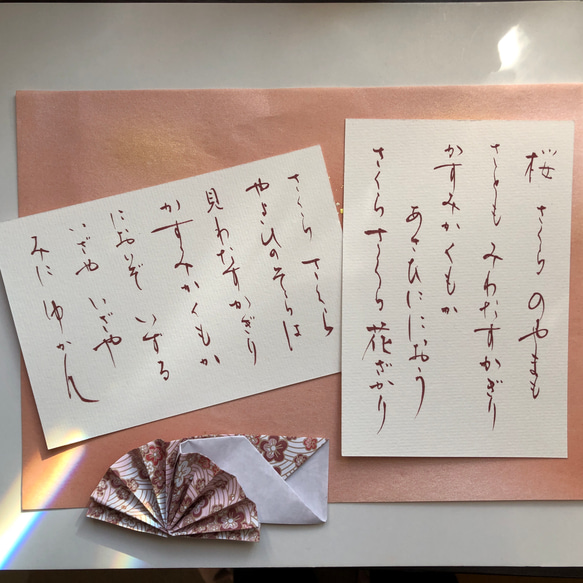 桜 さくら のやまも
さとも みわたすかぎり
かすみかくもか
あさひににおう
さくら さくら 花ざかり
さくら さくら
やよひのそらは
見わたすかぎり
かすみかくもか
においぞ いずる
いざや いざや
みに ゆかん